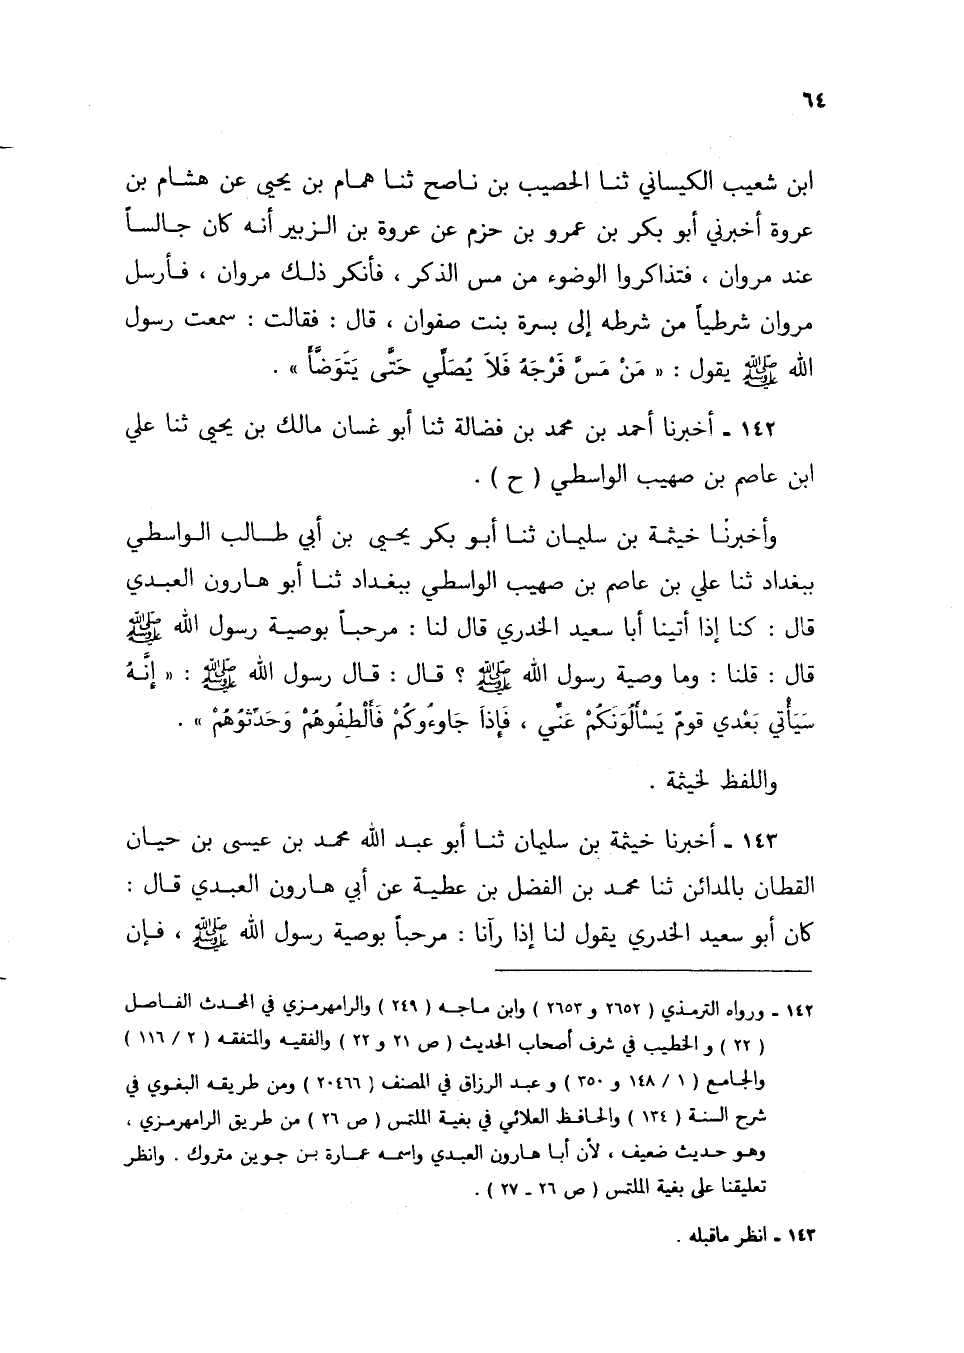 ٦٤
ابن شعيب الكيساني ثنا الخصيب بن ناصح ثنا همام بن يحيى عن هشام بن
عروة أخبرني أبو بكر بن عمرو بن حزم عن عروة بن الزبير أنه كان جالساً
عند مروان ، فتذاكروا الوضوء من مس الذكر ، فأنكر ذلك مروان ، فأرسل
مروان شرطياً من شرطه إلى بسرة بنت صفوان ، قال : فقالت : سمعت رسول
الله ﷺ يقول : « مَنْ مَسَّ فَرْجَهُ فَلاَ يُصَلِّي حَتَّى يَتَوَضَّأَ » .
١٤٢ ـ أخبرنا أحمد بن محمد بن فضالة ثنا أبو غسان مالك بن يحيى ثنا علي
ابن عاصم بن صهيب الواسطي ( ح ) .
وأخبرنا خيثمة بن سليمان ثنا أبو بكر يحيى بن أبي طالب الواسطي
ببغداد ثنا علي بن عاصم بن صهيب الواسطي ببغداد ثنا أبو هارون العبدي
قال : كنا إذا أتينا أبا سعيد الخدري قال لنا : مرحباً بوصية رسول الله ﷺ
قال : قلنا : وما وصية رسول الله ﷺ ؟ قال : قال رسول الله ﷺ : « إِنَّهُ
سَيَأْتي بَعْدي قومٌ يَسْأَلُونَكُمْ عَنِّي ، فَإِذَا جَاوءُوكُمْ فَأَلْطِفُوهُمْ وَحَدِّثوُهُمْ » .
واللفظ لخيثمة .
١٤٣ ـ أخبرنا خيثمة بن سليمان ثنا أبو عبد الله محمد بن عيسى بن حيان
القطان بالمدائن ثنا محمد بن الفضل بن عطية عن أبي هارون العبدي قال :
كان أبو سعيد الخدري يقول لنا إذا رآنا : مرحباً بوصية رسول الله ﷺ ، فإن
١٤٢ ـ ورواه الترمذي ( ٢٦٥٢ و ٢٦٥٣ ) وابن ماجه ( ٢٤٩ ) والرامهرمزي في المحدث الفاصل
( ٢٢ ) و الخطيب في شرف أصحاب الحديث ( ص ٢١ و ٢٢ ) والفقيه والمتفقه ( ٢ / ١١٦ )
والجامع ( ١ / ١٤٨ و ٣٥٠ ) و عبد الرزاق في المصنف ( ٢٠٤٦٦ ) ومن طريقه البغوي في
شرح السنة ( ١٣٤ ) والحافظ العلائي في بغية الملتمس ( ص ٢٦ ) من طريق الرامهرمزي ،
وهو حديث ضعيف ، لأن أبا هارون العبدي واسمه عمارة بن جوين متروك . وانظر
تعليقنا على بغية الملتمس ( ص ٢٦ ـ ٢٧ ) .
١٤٣ ـ انظر ماقبله .